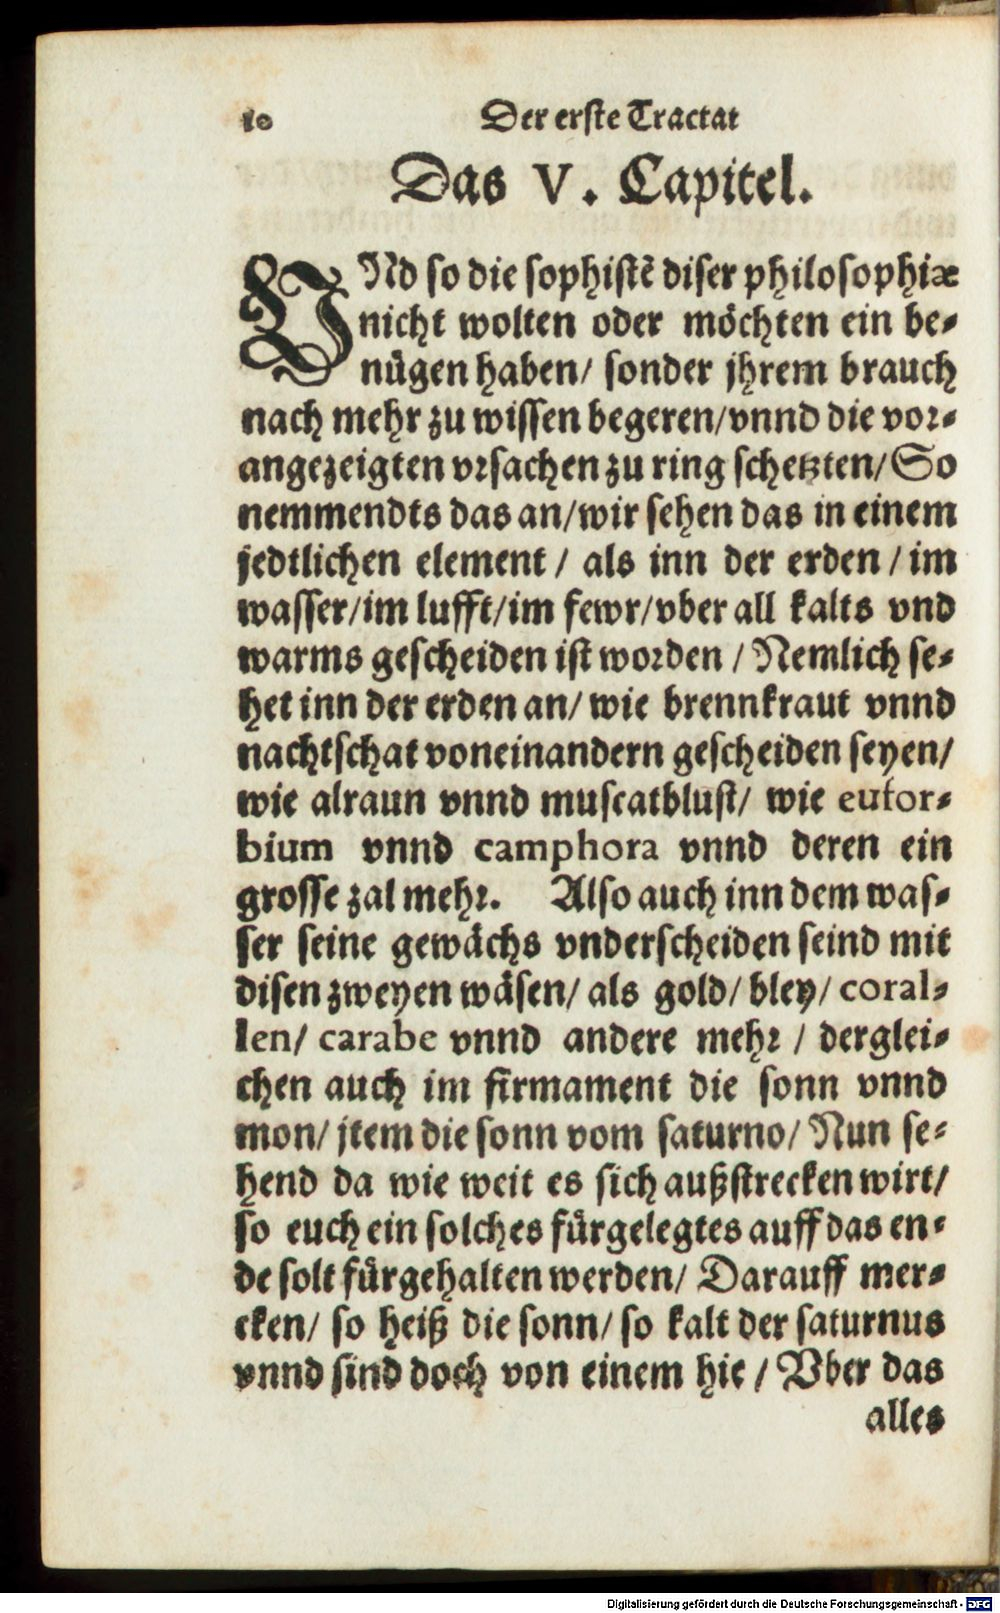 10 Der erste Tractat
Das V. Capitel.
VNd so die sophistẽ diser philosophiæ
nicht wolten oder möchten ein be-
nügen haben/ sonder jhrem brauch
nach mehr zu wissen begeren/vnnd die vor-
angezeigten vrsachen zu ring schetzten/ So
nemmendts das an/wir sehen das in einem
jedtlichen element / als inn der erden / im
wasser/im lufft/im fewr/vber all kalts vnd
warms gescheiden ist worden / Nemlich se-
het inn der erden an/ wie brennkraut vnnd
nachtschat voneinandern gescheiden seyen/
wie alraun vnnd muscatblust/ wie eufor-
bium vnnd camphora vnnd deren ein
grosse zal mehr. Also auch inn dem was-
ser seine gewächs vnderscheiden seind mit
disen zweyen wäsen/ als gold/ bley/ coral-
len/ carabe vnnd andere mehr / derglei-
chen auch im firmament die sonn vnnd
mon/ jtem die sonn vom saturno/ Nun se-
hend da wie weit es sich außstrecken wirt/
so euch ein solches fürgelegtes auff das en-
de solt fürgehalten werden/ Darauff mer-
cken/ so heiß die sonn/ so kalt der saturnus
vnnd sind doch von einem hie / Vber das
alles
Digitalisierung gefördert durch die Deutsche Forschungsgemeinschaft - DFG